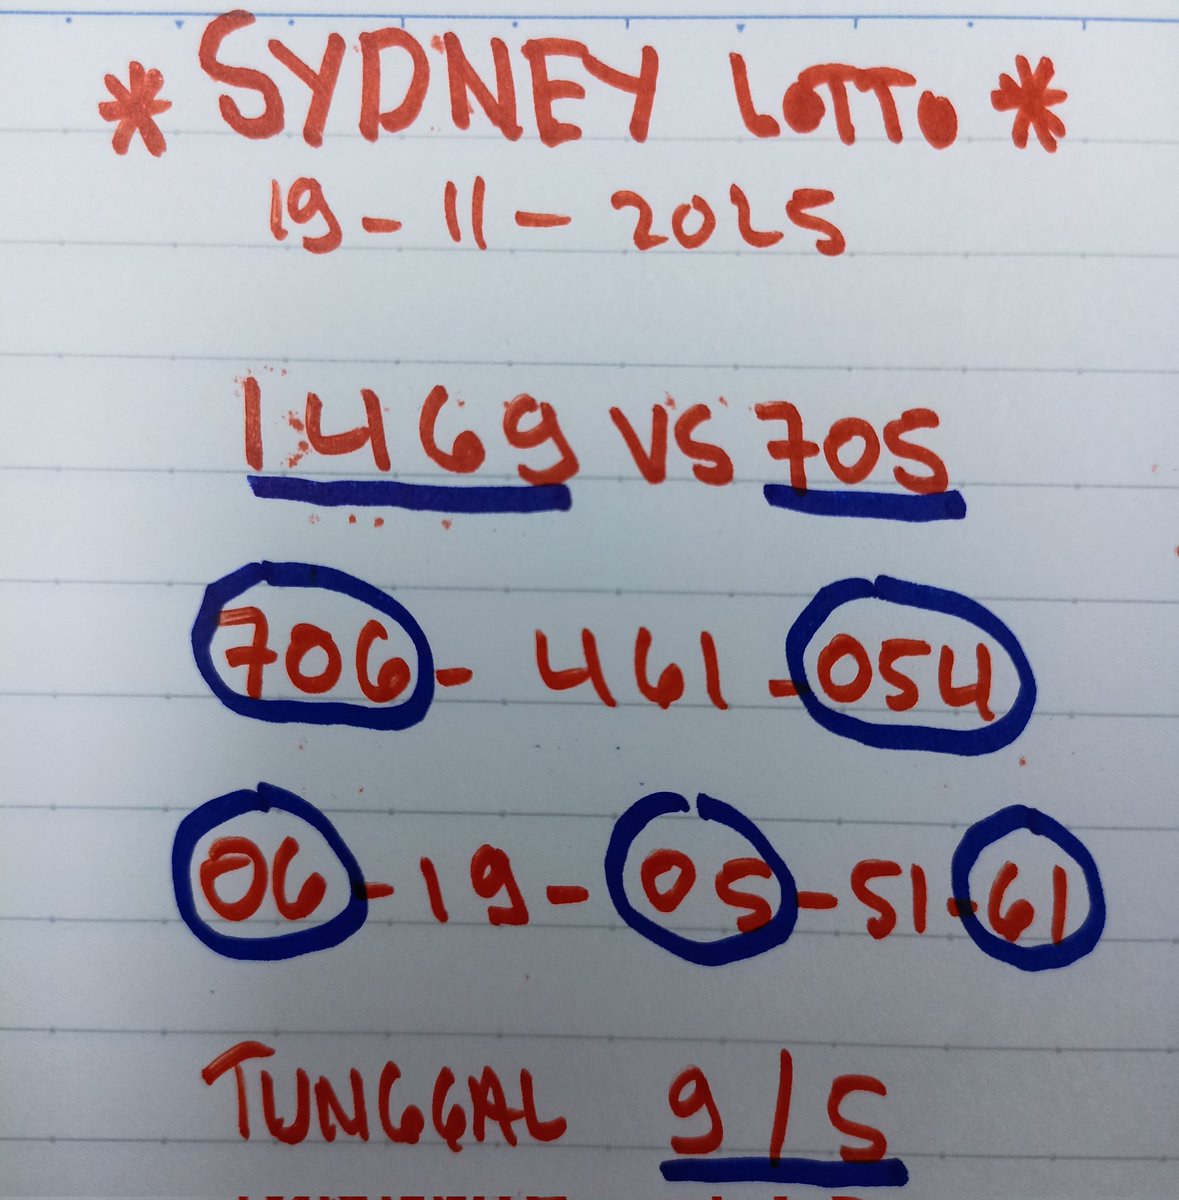 * SYDNEY LOTTO *
19-11-2025
1469 VS 705
706 - 461 - 054
06 - 19 - 05 - 51 - 61
TUNGGAL 9/5